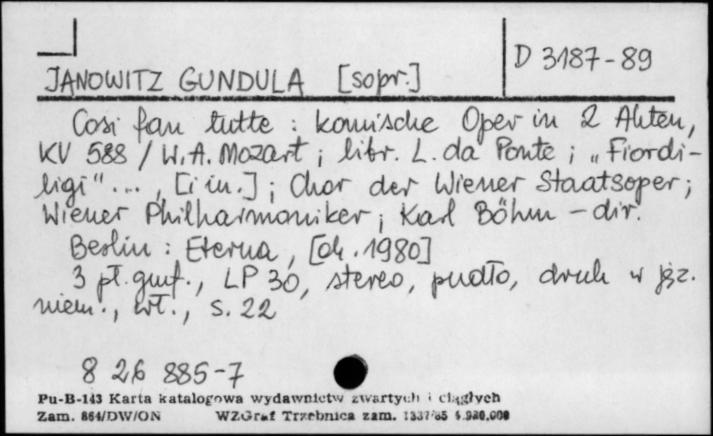 D 3187-89
JANOWITZ GUNDULA [sopr.]
Cosi fan tutte : komische Oper in 2 Akten,
KV 588 / W. A. Mozart ; libr. L. da Ponte ; „Fiordi-
ligi" ... , [i in.] ; Chor der Wiener Staatsoper ;
Wiener Philharmoniker ; Karl Böhm - dir.
Berlin : Eterna, [ok. 1980]
3 pł. gmf., LP 30, stereo, pudło, druk w jęz.
niem., wł., s. 22
8 26 885-7
Pu-B-143 Karta katalogowa wydawnictw zwartych i ciągłych
Zam. 864/DW/ON WZGraf Trzebnica zam. 1337/85 4.980.000